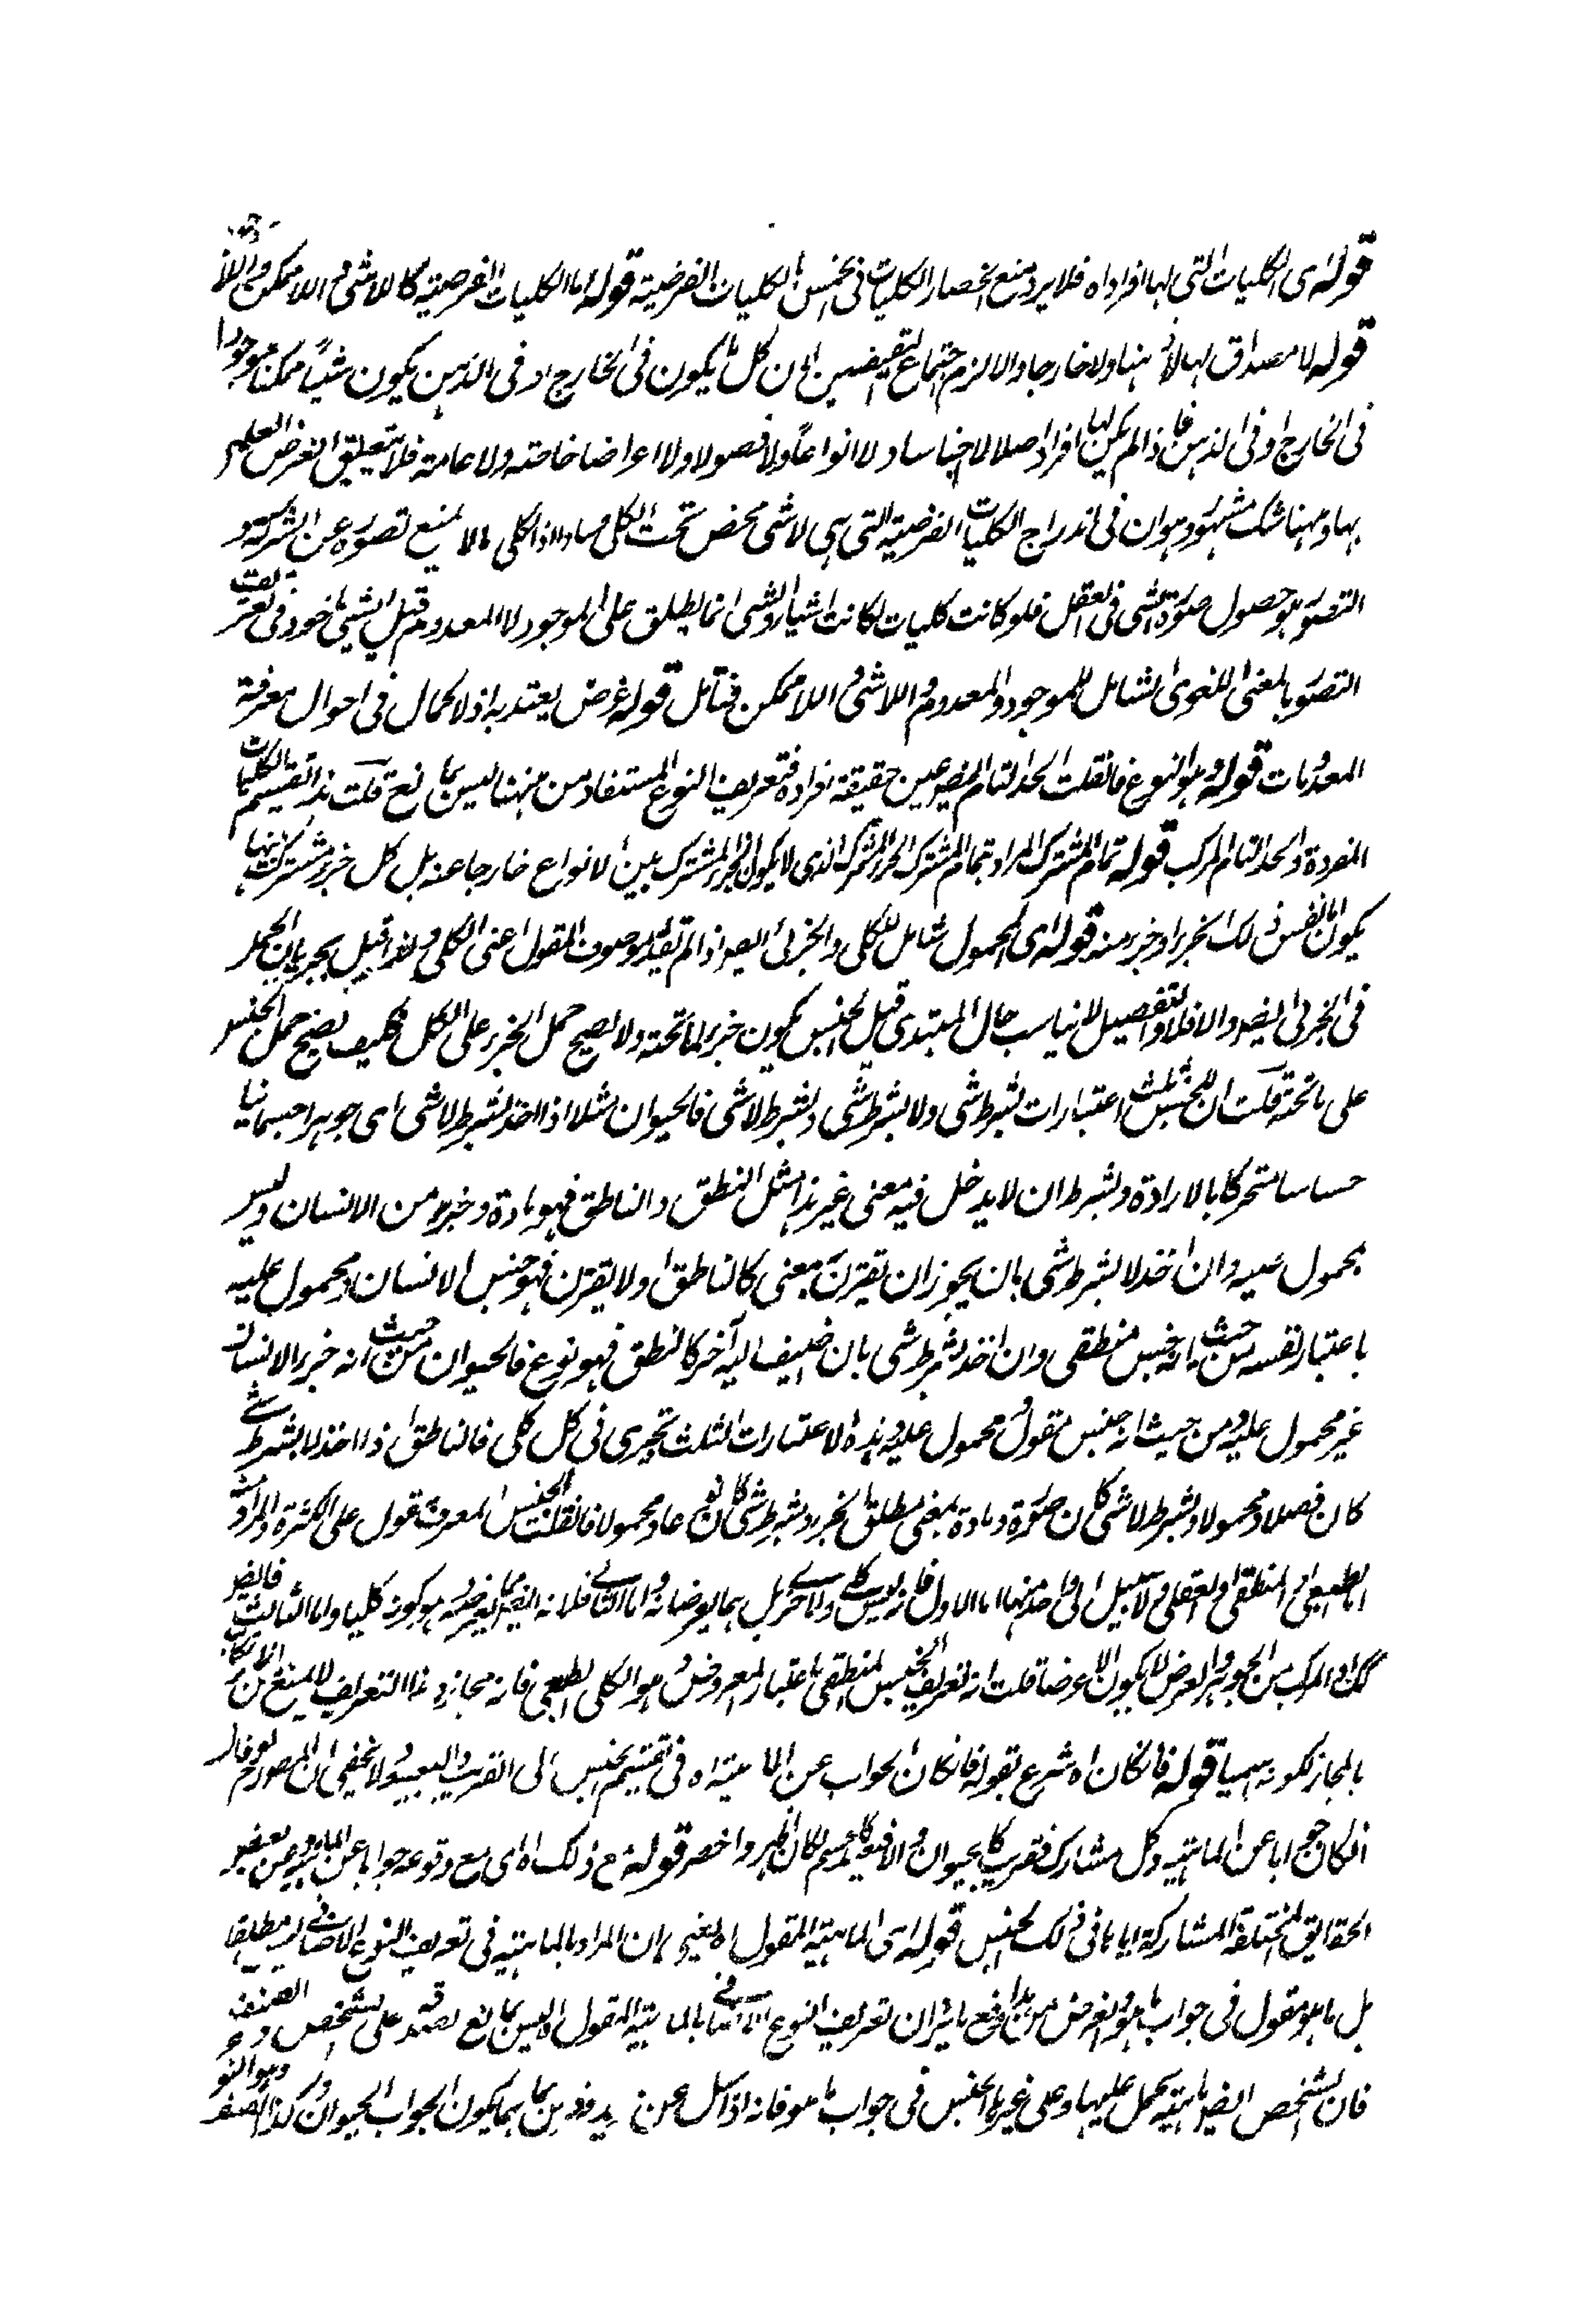 قوله اى الكليات التى لها افراد اه فلا يرد منع انحصار الكليات فى الخمس بالكليات الفرضية قوله اما الكليات الفرضية كاللاشى واللاممكن واللا
قوله لا مصداق لها لا ذهنا ولا خارجا والا لزم اجتماع النقيضين لان كل ما يكون فى الخارج او فى الذهن يكون شيئا ممكنا موجودا
فى الخارج او فى الذهن فاذا لم يكن لها افراد اصلا لا اجناسا ولا انواعا ولا فصولا ولا اعراضا خاصة ولا عامة فلا يتعلق الغرض العلمى
بها وههنا شك مشهور وهو ان فى اندراج الكليات الفرضية التى هى لاشى محض تحت الكلى فسادا اذ الكلى ما لا يمنع تصوره عن الشركة و
التصور هو حصول صورة الشى فى العقل فلو كانت كليات لكانت اشياء والشى انما يطلق على الموجود لا المعدوم قيل الشى ماخوذ فى تعريف
التصور بالمعنى اللغوى الشامل للموجود والمعدوم واللاشى واللاممكن فتامل قوله غرض يعتد به اذ لا كمال فى احوال معرفة
المعدومات قوله وهو النوع فان قلت الحد التام ايضا عين حقيقة افراده فتعريف النوع المستفاد من ههنا ليس بمانع قلت هذا تقسيم الكليات
المفردة والحد التام مركب قوله تمام المشترك المراد بتمام المشترك الجزء المشترك الذى لا يكون الجزء المشترك بين الانواع خارجا عنه بل كل جزء مشترك بينها
يكون اما نفس ذلك الجزء او جزء منه قوله اى المحمول شامل للكلى والجزئى ايضا اذا لم يقيد بموصوف المقول اعنى الكلى وهذا قيل بجريان الحمل
فى الجزئى ايضا والا فلا والتفصيل لا يناسب حال المبتدى قيل الجنس يكون جزء لما تحته ولا يصح حمل الجزء على الكل فكيف يصح حمل الجنس
على ما تحته قلت ان للجنس ثلث اعتبارات بشرط شى ولا بشرط شى وبشرط لا شى فالحيوان مثلا اذا اخذ بشرط لا شى اى جوهرا جسمانيا
حساسا متحركا بالارادة وبشرط ان لا يدخل فيه معنى غير هذا مثل النطق والناطق فهو مادة وجزء من الانسان وليس
بمحمول عليه وان اخذ لا بشرط شى بان يجوز ان تقترن بمعنى كالناطق اولا يقترن فهو جنس الانسان ومحمول عليه
باعتبار نفسه من حيث انه جنس منطقى وان اخذ بشرط شى بان اضيف اليه آخر كالنطق فهو نوع فالحيوان من حيث انه جزء الانسان
غير محمول عليه ومن حيث انه جنس مقول ومحمول عليه وهذه الاعتبارات الثلث تجرى فى كل كلى فالناطق اذا اخذ لا بشرط شے
كان فصلا ومحمولا وبشرط لا شى كان صورة ومادة بمعنى مطلق الجزء وبشرط شى كان نوعا ومحمولا فان قلت الجنس المعرف مقول على الكثرة والمراد منه
اما الطبيعى او المنطقى او العقلى ولا سبيل الى واحد منها اما الاول فانه ليس بكلى ولا جزئى بل هما يعرضانه واما الثانى فلانه انما يعرضه هو كونه كليا واما الثالث فايضا
كذلك والمركب من الجوهر والعرض لا يكون الا عرضا قلت انه تعريف الجنس المنطقى باعتبار المعروض وهو الكلى الطبيعى فانه مجاز وهذا التعريف لا يمنع
بالمجاز لكونه اسميا قوله فان كان اه شرع بقوله فان كان الجواب عن الماهية اه فى تقسيم الجنس الى القريب والبعيد ولا يخفى ان المصنف لو قال
ان كان جوابا عن الماهية وكل مشارك فقريب كالحيوان والا فبعيد كالجسم لكان اظهر واخصر قوله مع ذلك اه اى مع وقوعه جوابا عن الماهية وعن بعض
الحقائق المختلفة المشاركة اياها فى ذلك الجنس قوله اى الماهية المقول اه يعنى ان المراد بالماهية فى تعريف النوع الاضافى ليس مطلقا
بل ما هو مقول فى جواب ما هو والغرض من هذا دفع ما يرد ان تعريف النوع الاضافى بالماهية المقول اه ليس بمانع لصدقه على الشخص والصنف
فان الشخص ايضا ماهية يحمل عليها وعلى غيرها الجنس فى جواب ما هو فانه اذا سئل عن زيد وفرس بما هما يكون الجواب الحيوان وكذا الصنف